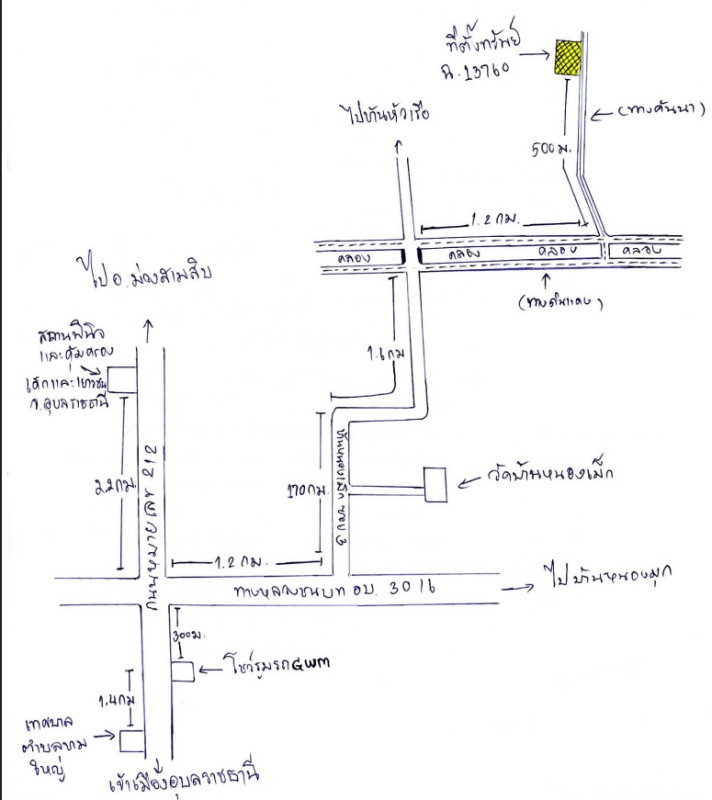 ที่ตั้งทรัพย์
ฉ.13760
ไปบ้านหัวเรือ
(ทางคันนา)
500 ม.
1.2 กม.
คลอง
คลอง
คลอง
คลอง
(ทางดินแดง)
ไป อ.ม่วงสามสิบ
สถานพินิจ
และคุ้มครอง
เด็กและเยาวชน
จ.อุบลราชธานี
1.6 กม
2.2 กม.
ถนนหมายเลข 212
170 กม.
บ้านหนองเม็ก ซอย 3
วัดบ้านหนองเม็ก
1.2 กม.
ทางหลวงชนบท อบ. 3016
ไปบ้านหนองมุก
300 ม.
โชว์รูมรถ GWM
1.4 กม
เทศบาล
ตำบลขาม
ใหญ่
เข้าเมืองอุบลราชธานี